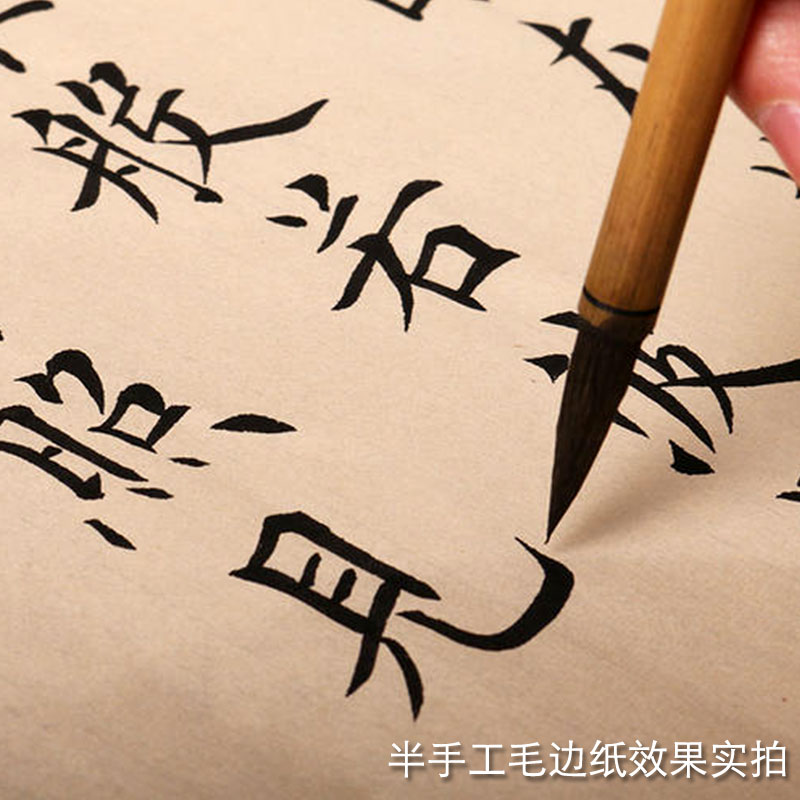 般若波
照見
半手工毛边纸效果实拍